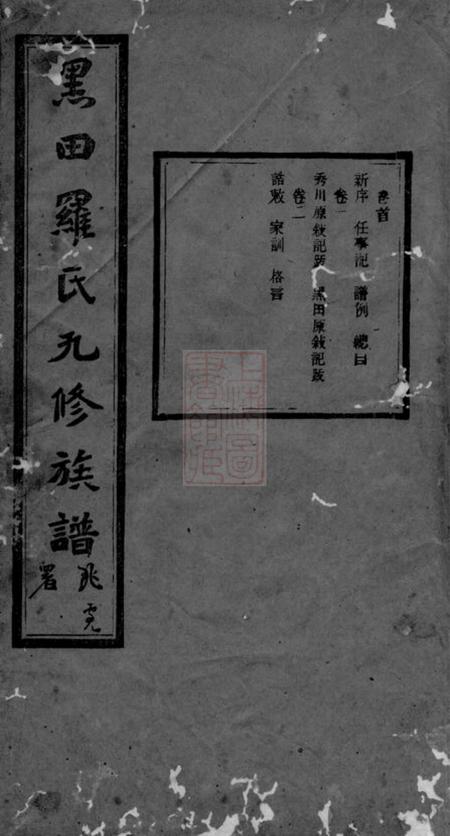 卷首
新序 任事記 譜例 總目
卷一
秀川原敘記跋 黑田原敘記跋
卷二
誥敕 家訓 格言
上海圖
書館藏
黑田羅氏九修族譜
署